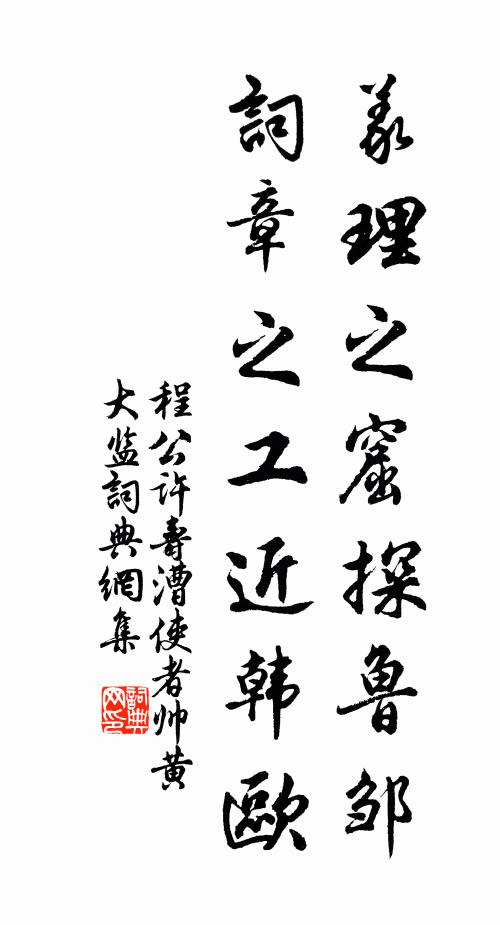 義理之窟探魯邹
詞章之工近韩歐
程公许壽漕使者帅黄
大监詞典網集
詞典网印